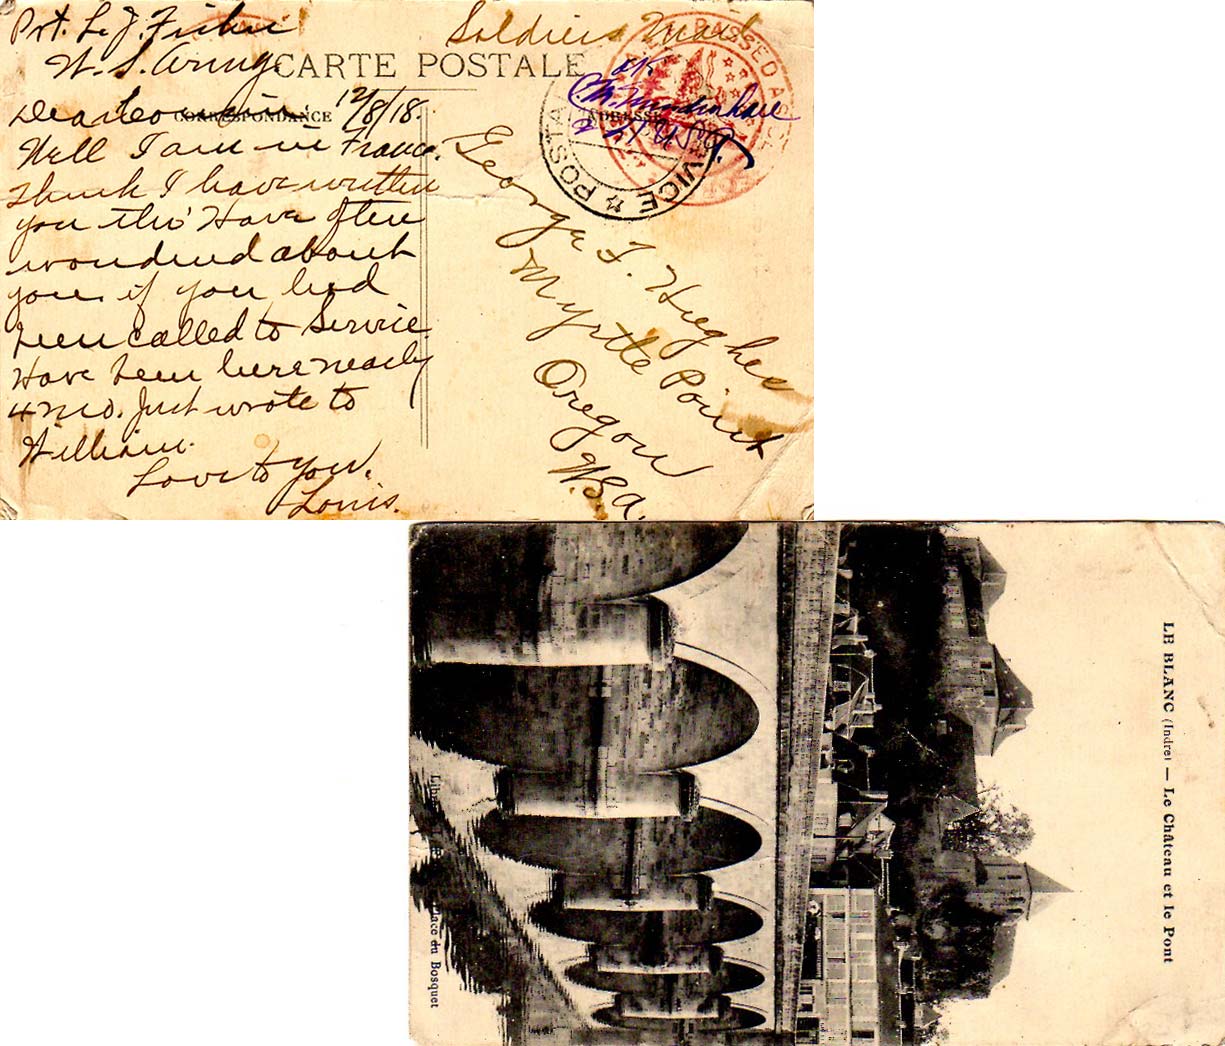 Pvt. L. J. Fisher
U. S. Army.
Soldiers Mail
CARTE POSTALE
CORRESPONDANCE
ADRESSE
Dear Cousin: 12/8/18.
Well I am in France.
Think I have written
you tho' Have often
wondered about
you, if you had
been called to Service.
Have been here nearly
4 mo. Just wrote to
William.
Love to you.
Louis.
PASSED AS
OK
POSTA
VICE
George T. Hughes
Myrtle Point
Oregon
U.S.A.
LE BLANC (Indre) — Le Château et le Pont
Place du Bosquet